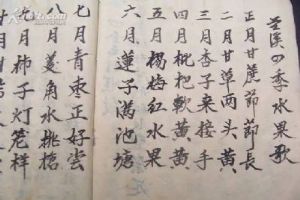 四季水果歌
正月甘蔗節節長
二月甘草两头黄
三月杏子来接手
四月枇杷軟黄黄
五月楊梅红水果
六月蓮子满池塘
七月青枣正好尝
八月菱角水桃
月柿子灯笼样